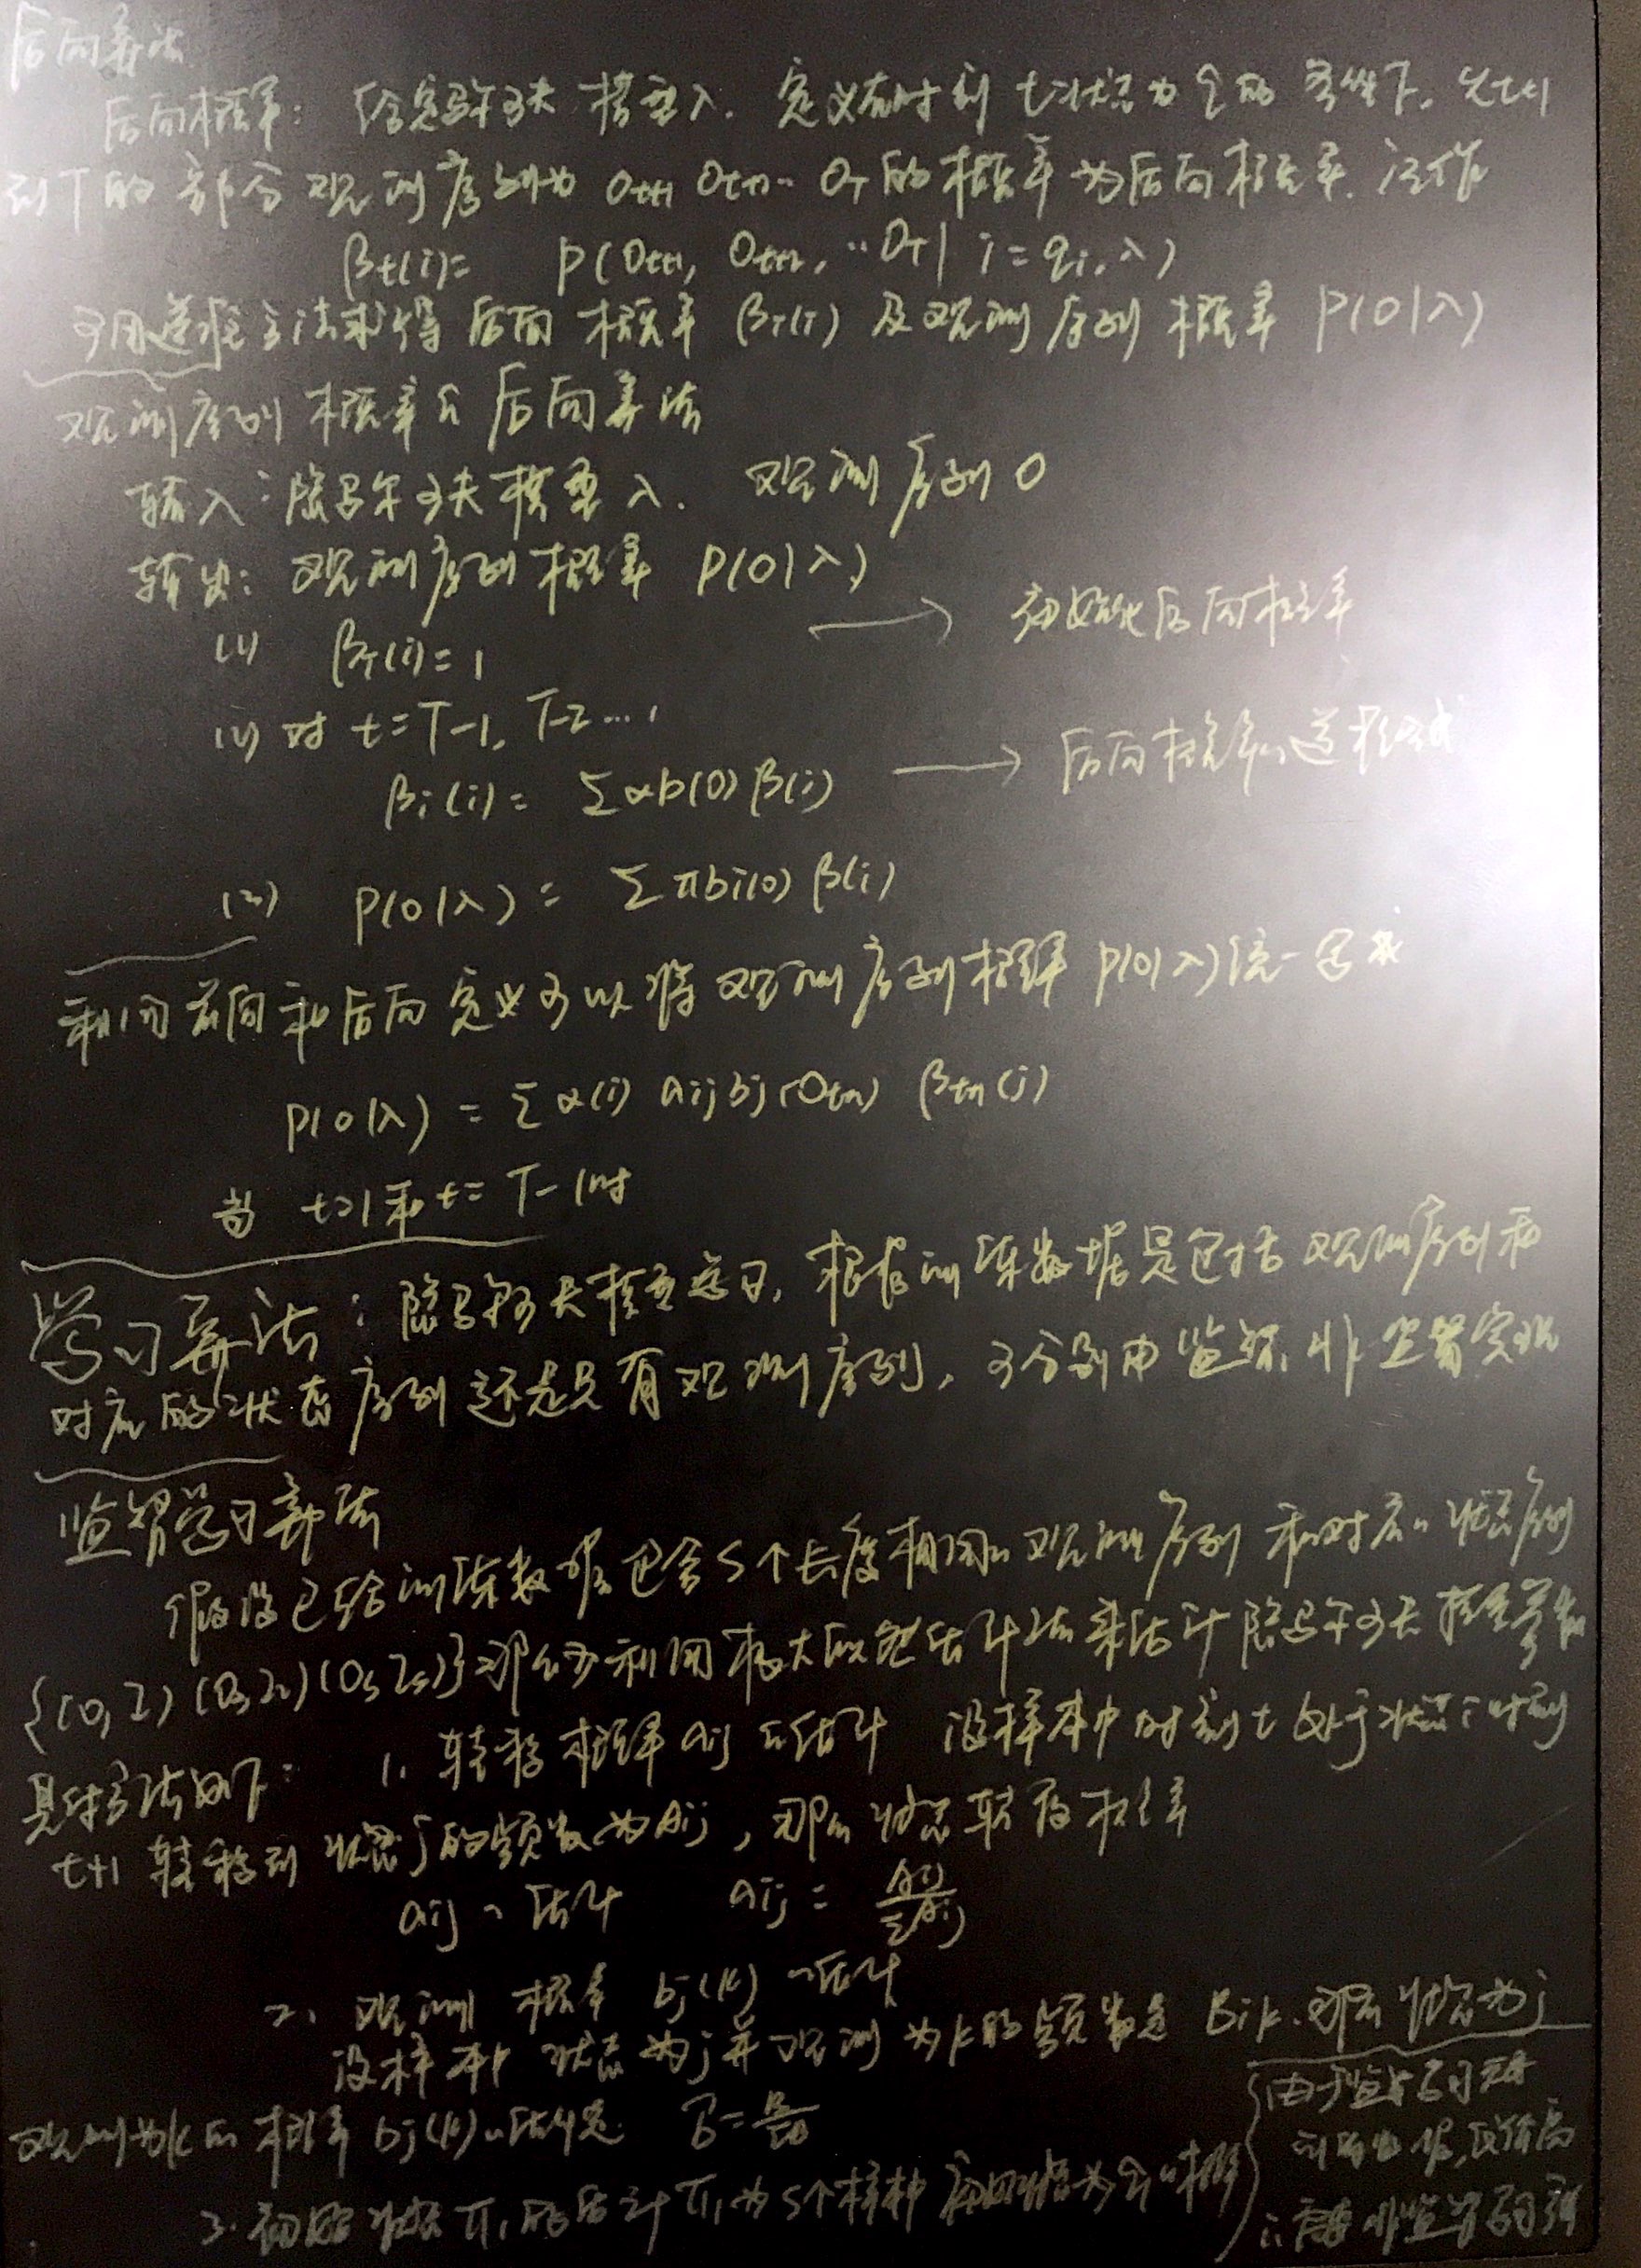 后向算法
后向概率: 给定隐马尔可夫模型λ. 定义在时刻t状态为q的条件下. 从t+1
到T的部分观测序列为 Ot+1 Ot+2.. OT的概率为后向概率. 记作
βt(i)= P(Ot+1, Ot+2, ..OT | i=qi, λ)
可用递推方法求得后向概率 βt(i) 及观测序列概率 P(O|λ)
观测序列概率的后向算法
输入: 隐马尔可夫模型λ. 观测序列O
输出: 观测序列概率 P(O|λ)
(1) βT(i)=1 → 初始化后向概率
(2) 对 t=T-1, T-2 ... 1
βi(i)= Σαb(O)β(i) → 后向概率的递推公式
(3) P(O|λ) = Σπbi(O) β(i)
利用前向和后向定义可以将观测序列概率 P(O|λ)统一写成
P(O|λ) = Σα(i) aij bj(Ot+1) βt+1(j)
当 t=1和t=T-1时
学习算法: 隐马尔可夫模型学习, 根据训练数据是包括观测序列和
对应的状态序列还是只有观测序列, 可分别由监督, 非监督实现
监督学习算法
假设已给训练数据包含S个长度相同的观测序列和对应的状态序列
{(O,I) (O2,I2) (Os,Is)} 那么可利用极大似然估计法来估计隐马尔可夫模型参数
具体方法如下: 1. 转移概率aij的估计 设样本中时刻t处于状态i时刻
t+1 转移到状态j的频数为Aij, 那么状态转移概率
aij的估计 aij = Aij/ΣAij
2. 观测概率 bj(k)的估计
设样本中状态为j并观测为k的频数是 Bjk. 那么状态为j
观测为k的概率 bj(k)的估计是
3. 初始状态πi的估计πi为S个样本中初始状态为qi的概率
由于监督学习
代价高
非监督学习